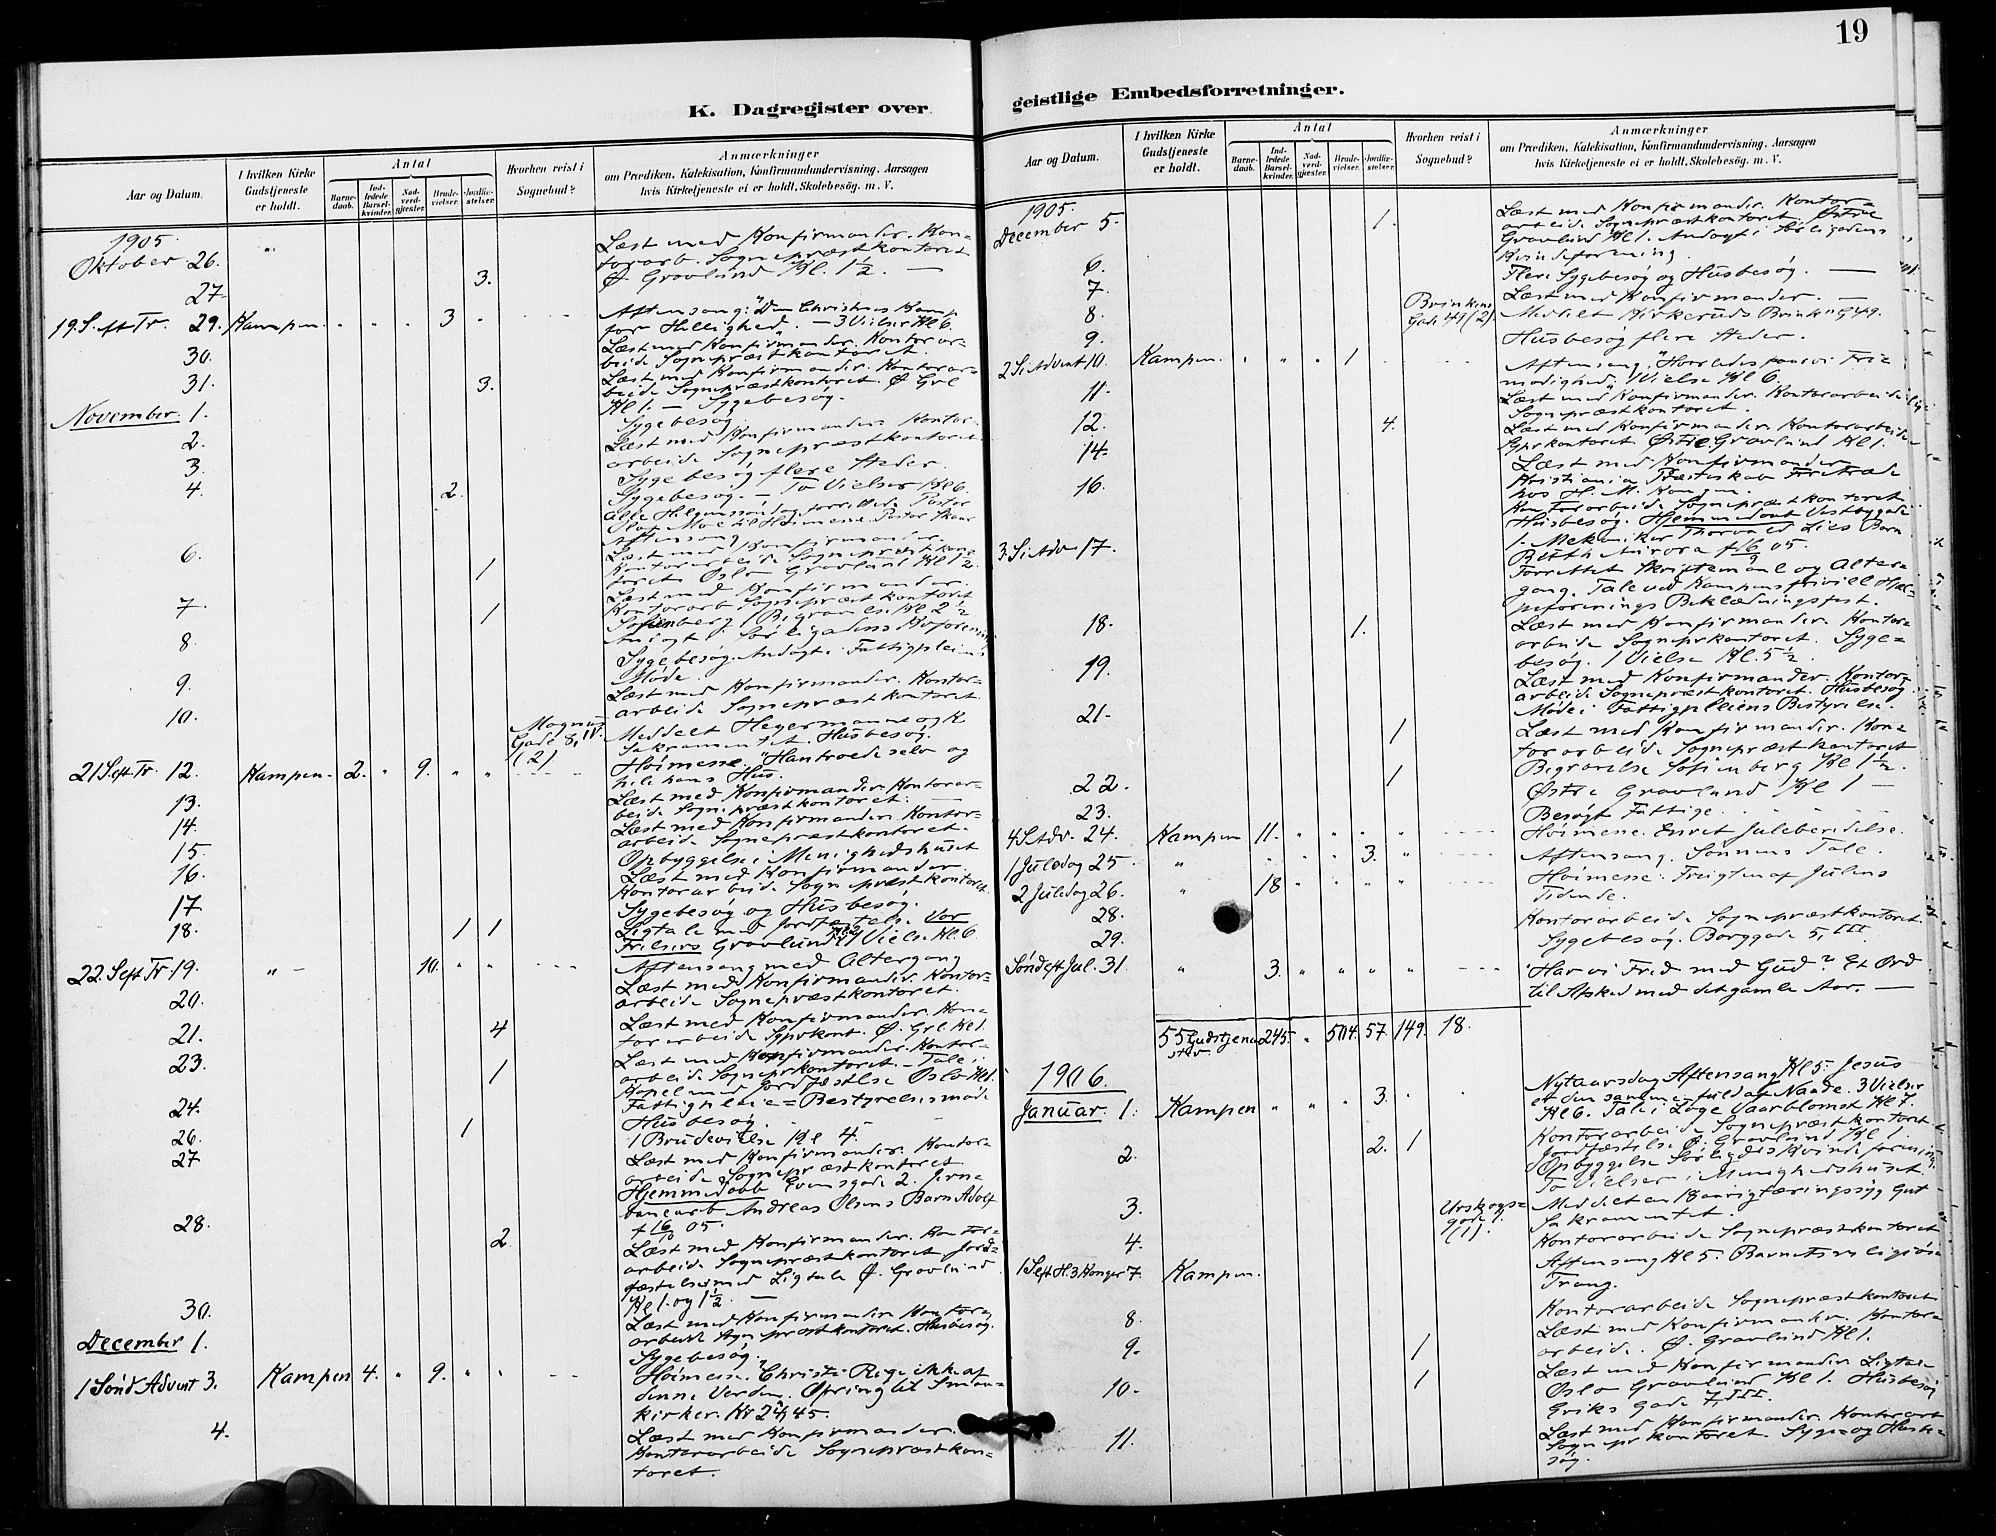 19
K. Dagregister over
geistlige Embedsforretninger.
Aar og Datum.
I hvilken Kirke
Gudstjeneste
er holdt.
Antal
Barne-
daab.
Ind-
ledede
Barsel-
kvinder.
Nad-
verd-
gjæster.
Brude-
vielser.
Jordfæ-
stelser.
Hvorhen reist i
Sognebud?
Anmærkninger
om Prædiken, Katekisation, Konfirmandundervisning, Aarsagen
hvis Kirketjeneste ei er holdt, Skolebesög. m. V.
1905.
Oktober 26.
Læst med Konfirmander. Kon-
torarb. Sognepræstkontoret
27. 3. Ø. Gravlund Kl. 1½. —
19. S. eft Tr. 29. Kampen. 3
Aftensang: "Den Christnes Kamp
for Hellighed". — 3 Vielser Kl 6.
30. Læst med Konfirmander. Kontorar-
beide Sognepræstkontoret.
31. 3. Læst med Konfirmander. Kontorar-
beide Sognepræstkontoret. Ø Grl
Kl 1. — Sygebesøg.
November 1. Sygebesøg
2. Læst med Konfirmander Kontor-
arbeide Sognepræstkontoret.
3. Sygebesøg flere Steder.
4. 2. Sygebesøg. — To Vielser Kl 6.
Aftensang
6. Læst med Konfirmander.
Kontorarbeide Sognepræstkon-
1 toret Oslo Gravlund Kl 1½
7. Læst med Konfirmander.
Kontorarb Sognepræstkontoret
1 Sofienberg 1 Begravelse Kl 2½
8. Sygebesøg. Andagt i Fattigpleiens
Møde.
9. Læst med Konfirmander. Kontor-
arbeide Sognepræstkontoret.
10. Magnus
Gade 8, IV.
(2)
Meddelt Hegermann og K
Sakramentet. Husbesøg.
21 S eft Tr. 12. Kampen. 2. 9.
Høimesse. "Han troede selv og
hele hans Hus.
13. Læst med Konfirmander. Kontorar-
beide Sognepræstkontoret. —
14. Læst med Konfirmander. Kontor-
arbeide Sognepræstkontoret.
15. Opbyggelse i Menighedshuset
16. Læst med Konfirmander.
Kontorarbeide Sognepræstkontoret.
17. Sygebesøg og Husbesøg.
18. 1. 1. Ligtale med Jordfæstelse Vor
Frelsers Gravlund 1 Vielse Kl. 6.
22. S eft Tr 19. " 10. Aftensang med Altergang
20. Læst med Konfirmander. Kontor-
arbeide Sognepræstkontoret.
21. 4 Læst med Konfirmander. Kon-
torarbeide Sgprkont. Ø. Grl. Kl 1.
23. Læst med Konfirmander. Kontor-
arbeide Sogneprkontoret. — Tale i
1 Kapel med Jordfæstelse Oslo Kl 1.
24. Fattigpleie = Bestyrelsesmøde
Husbesøg.
26. 1 1 Brudevielse Kl 4.
27 Læst med Konfirmander. Kontor-
arbeide Sognepræstkontoret
Hjemmedøbt Evensgade 2. Jern-
banearb Andreas Olsens Barn Adolf
f 16/10 05.
28. 2 Læst med Konfirmander. Kontor-
arbeide Sognepræstkontoret Jord-
fæstelser med Ligtale Ø. Gravlund
Kl 1. og 1½. —
30. Læst med Konfirmander. Kontor-
arbeide Sognepræstkontoret. Husbesøg.
December 1. Sygebesøg.
1 Sønd Advent 3. Kampen 4. 9.
Høimesse. "Christi Rige ikke af
denne Verden. Ofring til Smaa-
kirker. Kr 24,45.
4. Læst med Konfirmander.
Kontorarbeide Sognepræstkon-
toret.
Aar og Datum.
I hvilken Kirke
Gudstjeneste
er holdt.
Antal
Barne-
daab.
Ind-
ledede
Barsel-
kvinder.
Nad-
verd-
gjæster.
Brude-
vielser.
Jordfæ-
stelser.
Hvorhen reist i
Sognebud?
Anmærkninger
om Prædiken, Katekisation, Konfirmandundervisning, Aarsagen
hvis Kirketjeneste ei er holdt, Skolebesög. m. V.
1905.
December 5. 1.
Læst med Konfirmander. Kontor-
arbeide Sognepræstkontoret. Østre
Gravlund Kl 1. Andagt i Sørligadens
Kvindeforening.
6. Flere Sygebesøg og Husbesøg. —
7. Læst med Konfirmander. —
8. Brinkens
Gade 49 (2).
Meddelt
9. Husbesøg flere Steder.
2 S i Advent 10. Kampen. 1
Aftensang. "Hvorledes faar vi Fri-
modighed". 1 Vielse Kl 6.
11. Læst med Konfirmander. Kontorarbeide
Sognepræstkontoret.
12. 4. Læst med Konfirmander. Kontorarbeide
Sgprkontoret Østre Gravlund Kl 1.
14. Læst med Konfirmander
Kristiania Præsteskab Fretræde
hos H. M. Kongen.
16. Kontorarbeide Sognepræstkontoret.
Husbesøg. Hjemmedøbt Vestbygade
1. Mekaniker Thorvald Lies Barn
Aurora f 16/9 05.
3. S i Adv. 17. Forrettet Skriftemaal og Alter-
gang. Tale ved Kampens frivill Hjæl-
peforenings Beklædningsfest.
18. 1. Læst med Konfirmander. Kontor-
arbeide Sogneprkontoret. Syge-
besøg. 1 Vielse Kl. 5½.
19. Læst med Konfirmander. Kontor-
arbeide Sognepræstkontoret. Husbesøg
Møde i Fattigpleiens Bestyrelse.
21. 1 Læst med Konfirmander. Kon-
torarbeide Sognepræstkontoret
Begravelse Sofienberg Kl 1½.
22. 1 Østre Gravlund Kl 1 —
23. Besøgt Fattige.
4 S Adv. 24. Kampen 11. Høimesse. En ret Juleberedelse.
1 Juledag 25. " 3. Aftensang. Sønnens Tale.
2 Juledag 26. " 18 Høimesse. Frugten af Julens
Tidende.
28. Kontorarbeide Sognepræstkontoret.
29. Sygebesøg. Borggade 5, III.
Sønd eft Jul. 31. " 3. "Har vi Fred med Gud? Et Ord
til Afsked med det gamle Aar. —
55 Gudstjene-
ster. 245. " 504. 57. 149. 18.
1906.
Januar 1. Kampen 3.
Nytaarsdag Aftensang Kl 5. Jesus
et den samme — fuld af Naade. 3 Vielser
Kl 6. Tale i Loge Vaarblomst Kl 7.
2. 2. 1 Kontorarbeide Sognepræstkontoret
Jordfæstelse Ø. Gravlund Kl 1.
Opbyggelse Sørligades Kvindeforening.
To Vielser i Menighedshuset.
3. Urskogs-
gade 1.
(1).
Meddelt en 18 aarig tæringssyg Gut
Sakramentet.
4. Kontorarbeide Sognepræstkontoret
1 S eft H. 3 Konger 7. Kampen. Aftensang Kl 5. Barnets religiøse
Trang.
8. Kontorarbeide Sognepræstkontoret
9. 1 Læst med Konfirmander. Kontor-
arbeide. Ø. Gravlund Kl 1.
10. 1 Læst med Konfirmander Ligtale
Oslo Gravlund Kl 1. Husbesøg
Eriks Gade 7, III.
11. Læst med Konfirmander. Kontorarb
Sogneprkontoret. Syge= og Husbe-
søg.